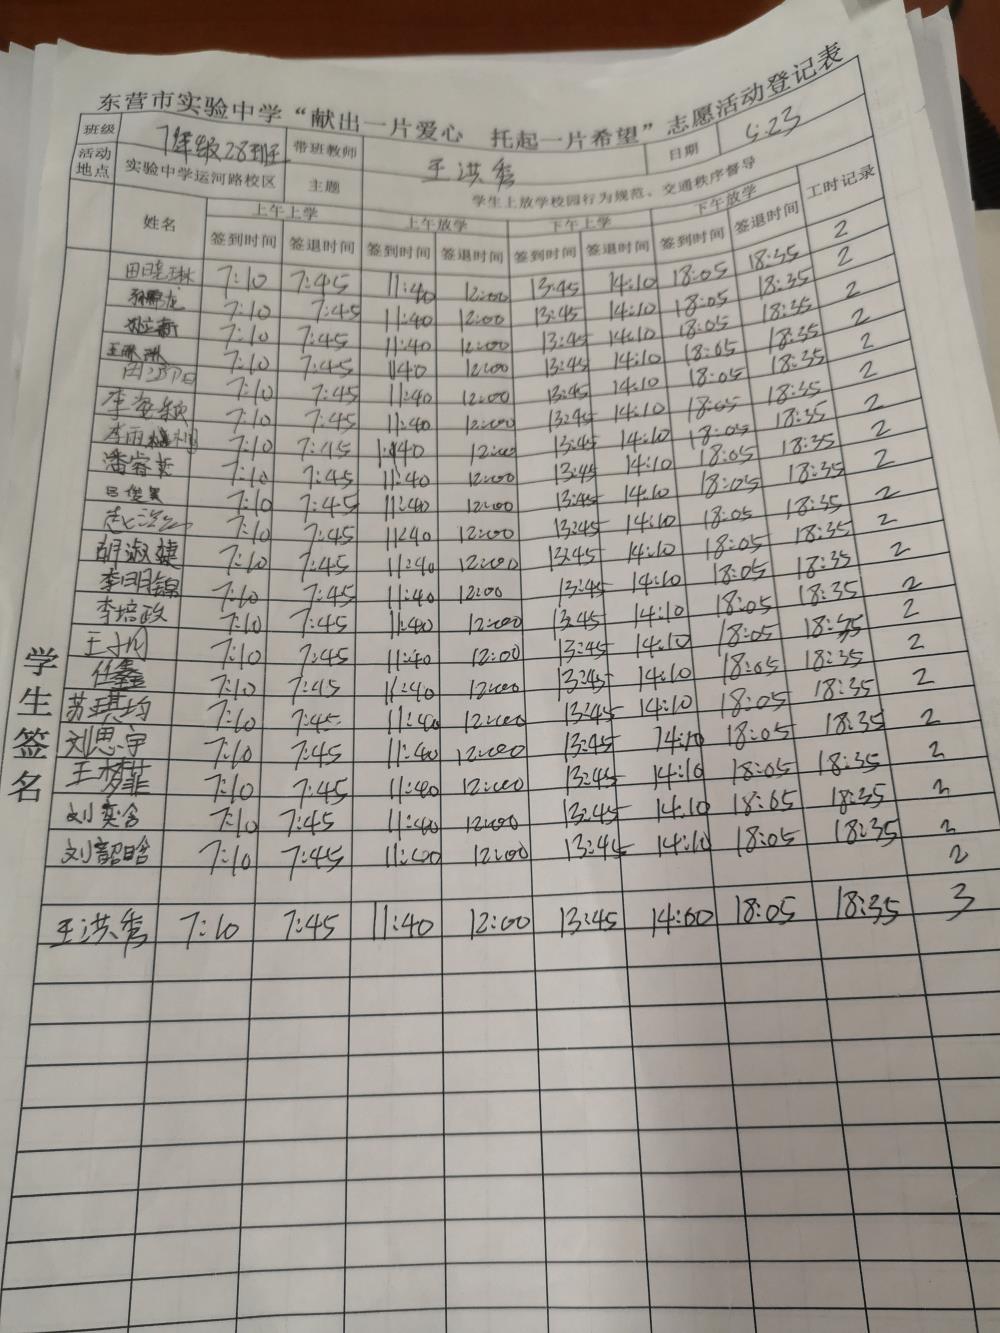 东营市实验中学“献出一片爱心 托起一片希望”志愿活动登记表
班级 7年级28班 带班教师 王洪秀 日期 5.23
活动地点 实验中学运河路校区 主题 学生上放学校园行为规范、交通秩序督导
姓名 上午上学 上午放学 下午上学 下午放学 工时记录
签到时间 签退时间 签到时间 签退时间 签到时间 签退时间 签到时间 签退时间 2
田晓琳 7:10 7:45 11:40 12:00 13:45 14:10 18:05 18:35 2
7:10 7:45 11:40 12:00 13:45 14:10 18:05 18:35 2
7:10 7:45 11:40 12:00 13:45 14:10 18:05 18:35 2
王琳琳 7:10 7:45 1140 12:00 13:45 14:10 18:05 18:35 2
7:10 7:45 11:40 12:00 13:45 14:10 18:05 18:35 2
李姿颖 7:10 7:45 11:40 12:00 13:45 14:10 18:05 18:35 2
李雨 7:10 7:45 11:40 12:00 13:45 14:10 18:05 18:35 2
潘睿哲 7:10 7:45 11:40 12:00 13:45 14:10 18:05 18:35 2
吕俊昊 7:10 7:45 11:40 12:00 13:45 14:10 18:05 18:35 2
7:10 7:45 11:40 12:00 13:45 14:10 18:05 18:35 2
胡淑婕 7:10 7:45 11:40 12:00 13:45 14:10 18:05 18:35 2
李明锦 7:10 7:45 11:40 12:00 13:45 14:10 18:05 18:35 2
李培政 7:10 7:45 11:40 12:00 13:45 14:10 18:05 18:35 2
王 7:10 7:45 11:40 12:00 13:45 14:10 18:05 18:35 2
任鑫 7:10 7:45 11:40 12:00 13:45 14:10 18:05 18:35 2
苏琪均 7:10 7:45 11:40 12:00 13:45 14:10 18:05 18:35 2
刘思宇 7:10 7:45 11:40 12:00 13:45 14:10 18:05 18:35 2
王梦菲 7:10 7:45 11:40 12:00 13:45 14:10 18:05 18:35 2
刘奕含 7:10 7:45 11:40 12:00 13:45 14:10 18:05 18:35 2
刘韶晗 7:10 7:45 11:40 12:00 13:45 14:10 18:05 18:35 2
王洪秀 7:10 7:45 11:40 12:00 13:45 14:00 18:05 18:35 3
学生签名